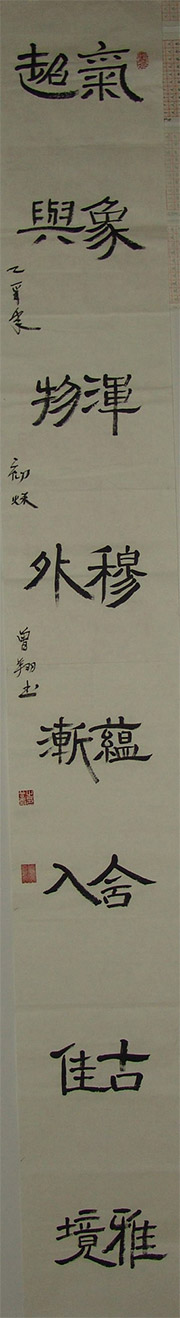 氣象渾穆蘊含古雅
超與物外漸入佳境
乙酉歲 初秋 曾翔书